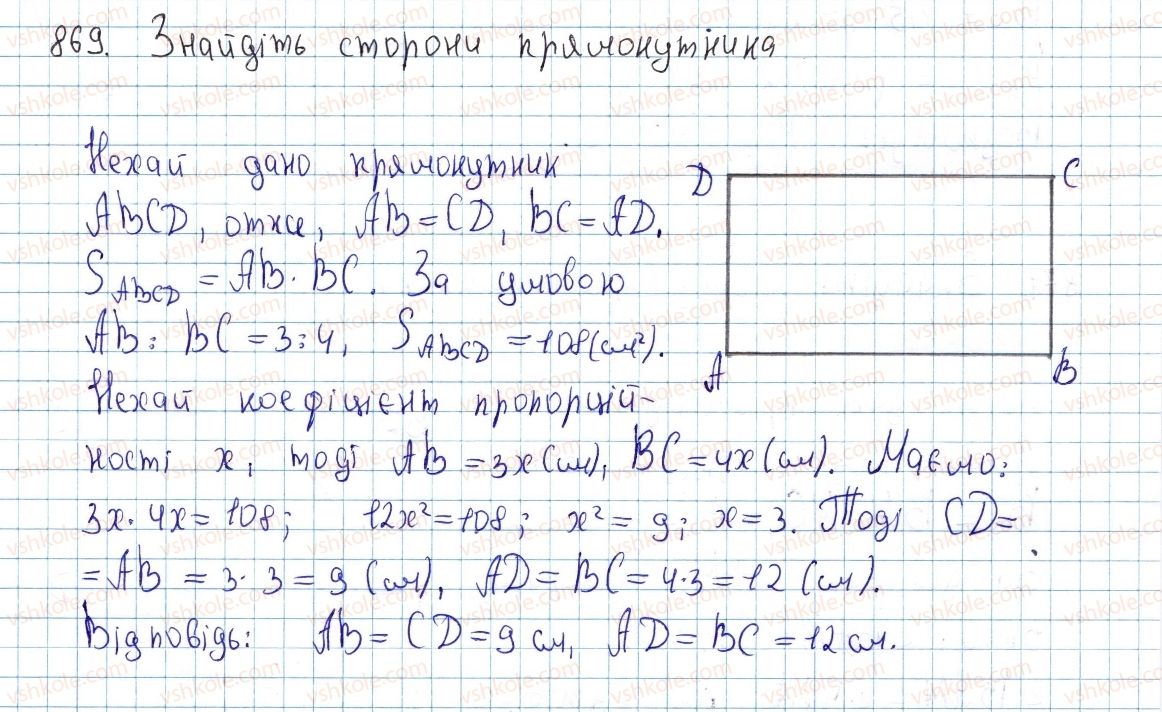 869. Знайдіть сторони прямокутника
Нехай дано прямокутник
ABCD, отже, AB = CD, BC = AD.
S ABCD = AB · BC. За умовою
AB : BC = 3 : 4, S ABCD = 108 (см²).
Нехай коефіцієнт пропорцій-
ності x, тоді AB = 3x (см), BC = 4x (см). Маємо:
3x · 4x = 108; 12x² = 108; x² = 9; x = 3. Тоді CD =
= AB = 3 · 3 = 9 (см), AD = BC = 4 · 3 = 12 (см).
Відповідь: AB = CD = 9 см, AD = BC = 12 см.
D C
A B
vshkole.com